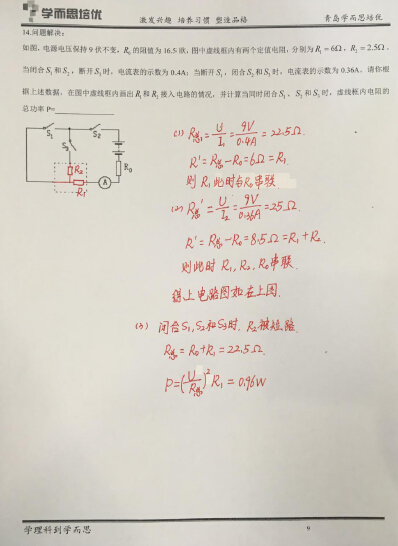 学而思培优
激发兴趣 培养习惯 塑造品格
青岛学而思培优
14.问题解决:
如图,电源电压保持 9 伏不变,R₀的阻值为 16.5 欧,图中虚线框内有两个定值电阻,分别为R₁=6Ω,R₂=2.5Ω,
当闭合S₁和S₂,断开S₃时,电流表的示数为 0.4A;当断开S₁,闭合S₂和S₃时,电流表的示数为 0.36A。请你根
据上述数据,在图中虚线框内画出R₁和R₂接入电路的情况,并计算当同时闭合S₁、S₂和S₃时,虚线框内电阻的
总功率 P=
S₁ S₂
S₃
R₂
R₁
A
R₀
(1) R总=U/I₁=9V/0.4A=22.5Ω
R'=R总-R₀=6Ω=R₁
则R₁此时与R₀串联
(2) R总'=U/I₂=9V/0.36A=25Ω
R'=R总-R₀=8.5Ω=R₁+R₂
则此时R₁,R₂,R₀串联
综上电路图如左上图.
(3) 闭合S₁,S₂和S₃时,R₂被短路
R总=R₀+R₁=22.5Ω
P=(U/R总)²R₁=0.96W
学理科到学而思
9